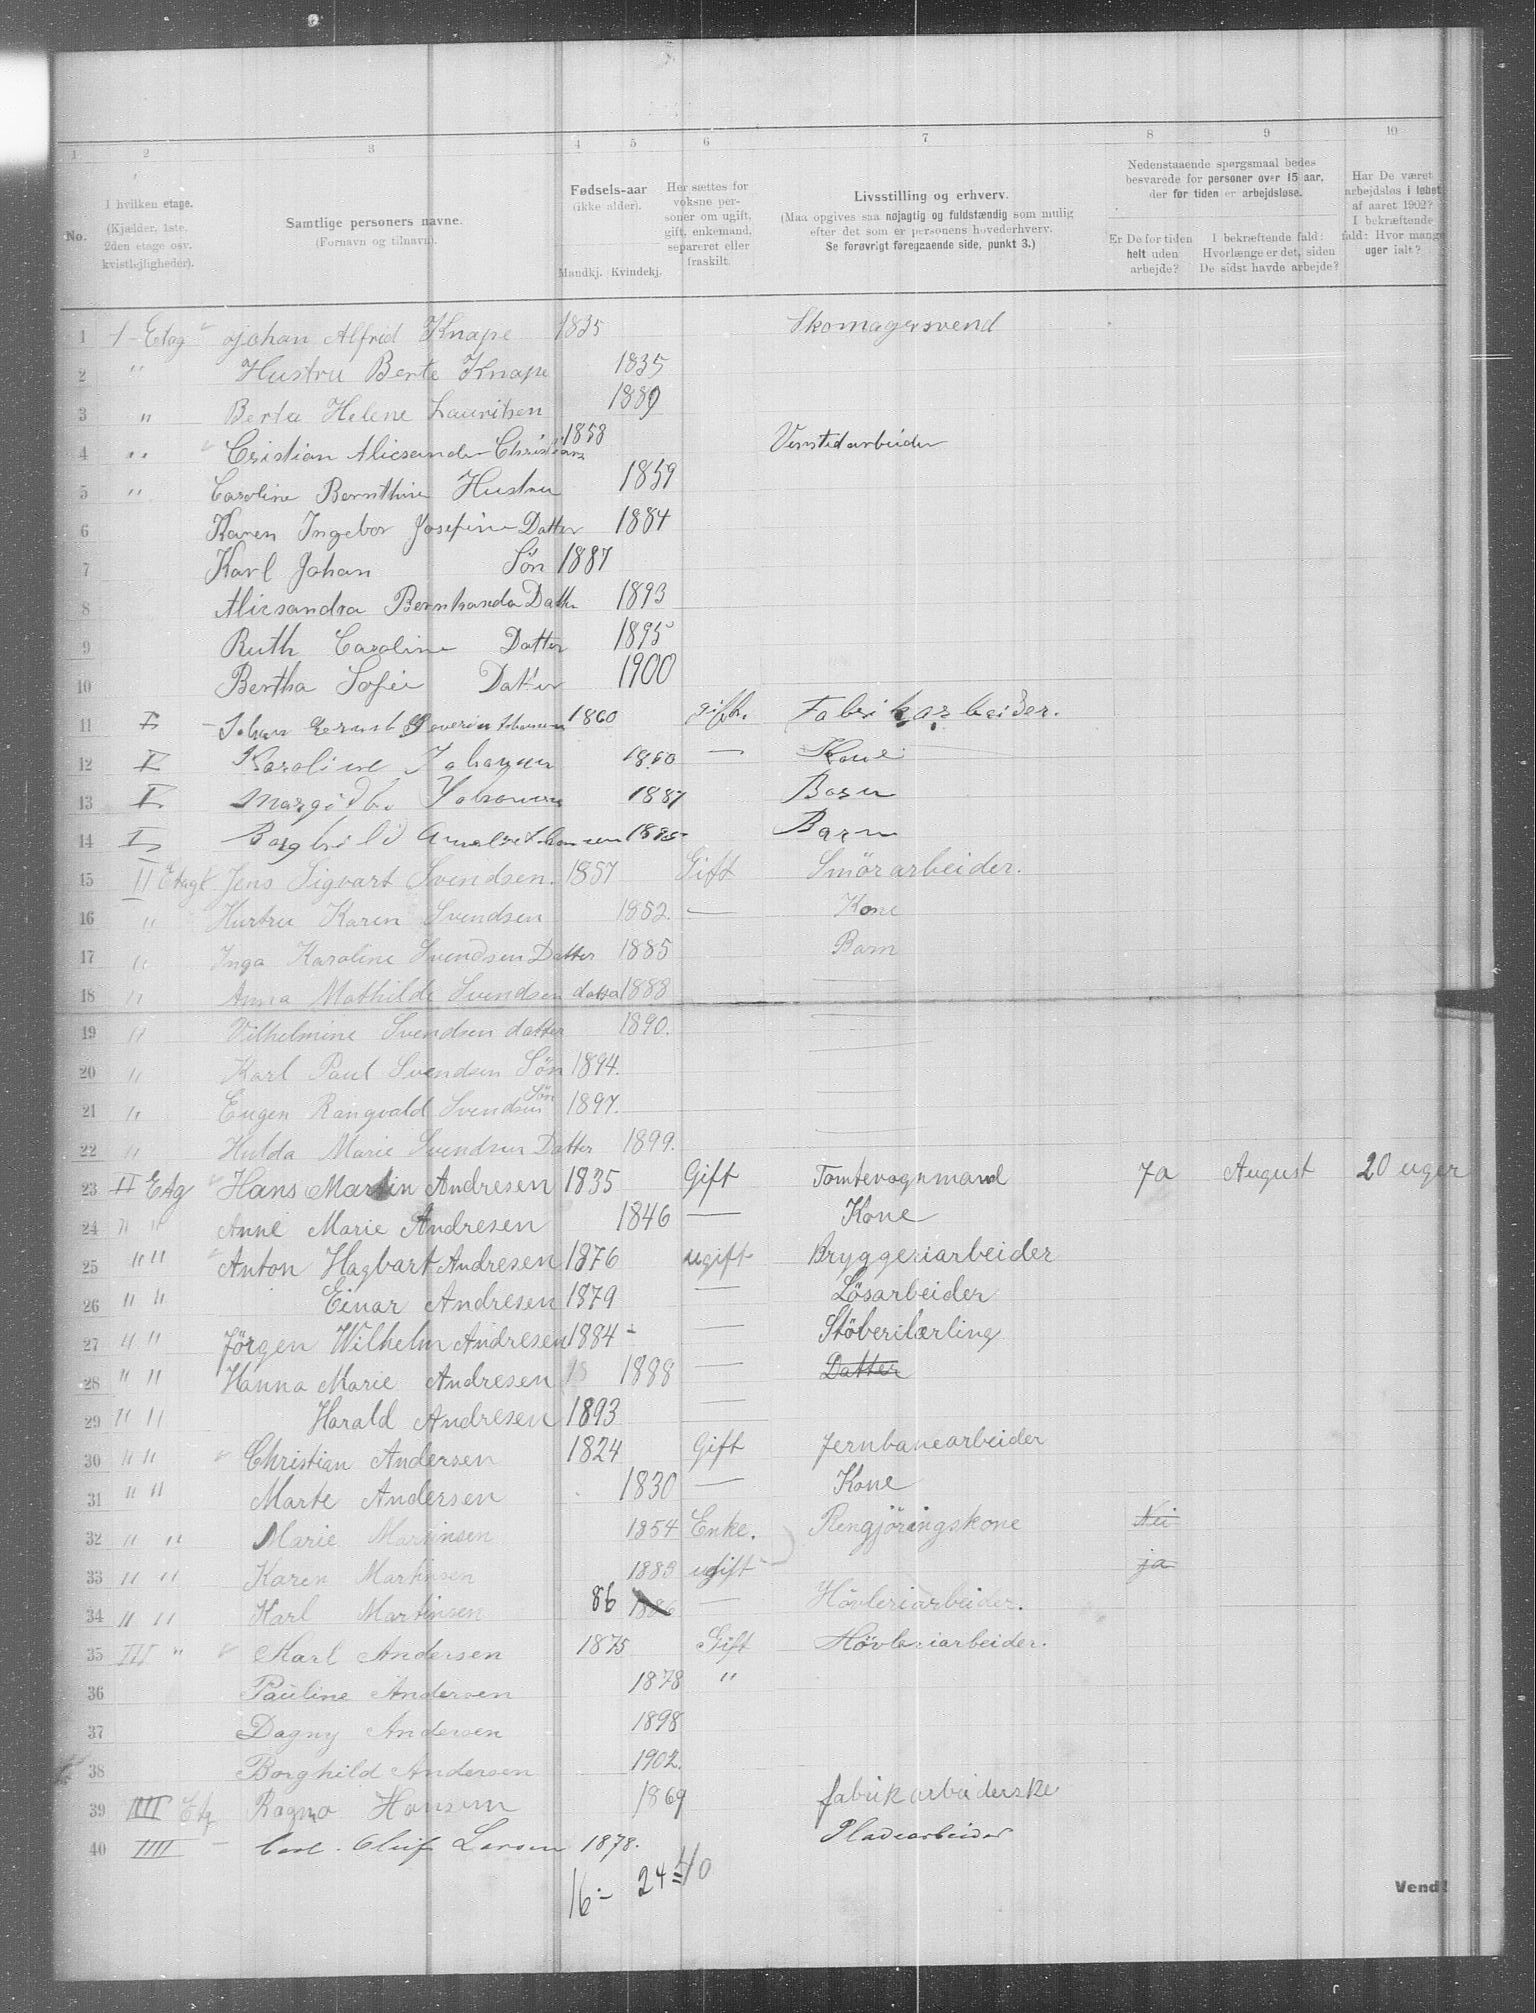 1 2 3 4 5 6 7 8 9 10
No.
I hvilken etage.
(Kjælder, 1ste, 2den etage osv. kvistlejligheder).
Samtlige personers navne.
(Fornavn og tilnavn).
Fødsels-aar
(ikke alder).
Mandkj. Kvindekj.
Her sættes for voksne personer om ugift, gift, enkemand, separeret eller fraskilt.
Livsstilling og erhverv.
(Maa opgives saa nøjagtig og fuldstændig som mulig efter det som er personens hovederhverv.
Se forøvrigt foregaaende side, punkt 3.)
Nedenstaaende spørgsmaal bedes besvarede for personer over 15 aar, der før tiden er arbejdsløse.
Er De for tiden helt uden arbejde?
I bekræftende fald: Hvorlænge er det, siden De sidst havde arbejde?
Har De været arbejdsløs i løbet af aaret 1902? I bekræftende fald: Hvor mange uger ialt?
1 1 Etag Johan Alfred Knape 1835 Skomagersvend
2 " Hustru Berte Knape 1835
3 " Berta Helene Lauritsen 1889
4 " Cristian Alicsander 1858
5 " Caroline Bernthine Hustru 1859
6 Karen Ingebor Josefine Datter 1884
7 Karl Johan Søn 1887
8 Alicsandra Datter 1893
9 Ruth Caroline Datter 1895
10 Bertha Sofie Datter 1900
11 I Johan Ernst Severin Johansen 1860 gift. Fabrikarbeider.
12 I Karoline Johansen 1860 — Kone
13 I Johansen 1887 Barn
14 I Borghild Barn
15 II Etage Jens Sigvart Svendsen. 1857 Gift Smörarbeider.
16 " Hustru Karen Svendsen 1852. — Kone
17 " Inga Karoline Svendsen Datter 1885 Barn
18 " Anna Mathilde Svendsen datter 1888
19 " Vilhelmine Svendsen datter 1890.
20 " Karl Paul Svendsen Søn 1894.
21 " Eugen Rangvald Svendsen Søn 1897.
22 " Hulda Marie Svendsen Datter 1899.
23 II Etg Hans Martin Andresen 1835 Gift Tomtevognmand Ja August 20 uger
24 " " Anne Marie Andresen 1846 — Kone
25 " " Anton Hagbart Andresen 1876 ugift Bryggeriarbeider
26 " " Einar Andresen 1879 — Lösarbeider
27 " " Jörgen Wilhelm Andresen 1884 — Stöberilærling
28 " " Hanna Marie Andresen 18 1888 — Datter
29 " " Harald Andresen 1893 —
30 " " Christian Andersen 1824 Gift Jernbanearbeider
31 " " Marte Andersen 1830 — Kone
32 " " Marie Martinsen 1854 Enke. Rengjöringskone Nei
33 " " Karen Martinsen 1883 ugift ja
34 " " Karl Martinsen 86 1886 — Hövleriarbeider.
35 III " Karl Andersen 1875 Gift Hövleriarbeider.
36 Pauline Andersen 1878 "
37 Dagny Andersen 1898
38 Borghild Andersen 1902.
39 IIII Etg Ragna Hansen 1869 fabrikarbeiderske
40 IIII Carl Oluf Larsen 1878. Pladearbeider
16 - 24 = 40
Vend!